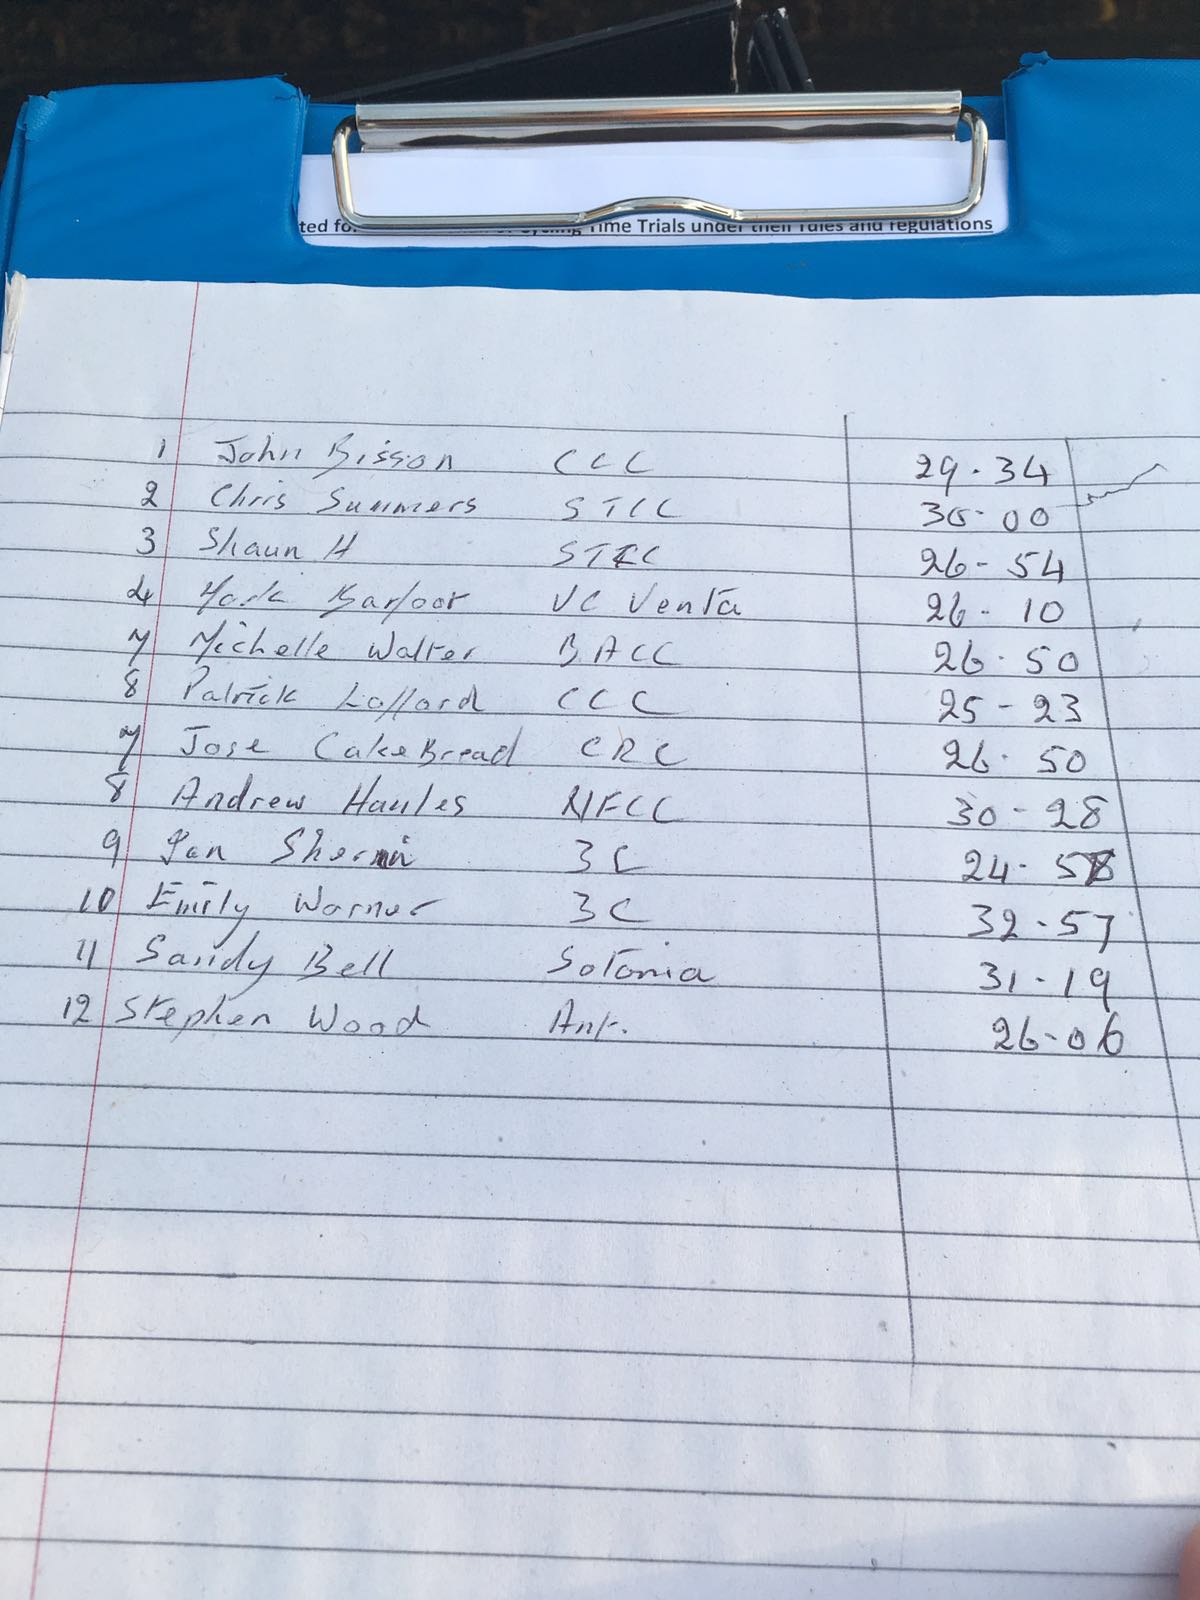 ted fo Time Trials under their rules and regulations
1 John Bisson CCC 29-34
2 Chris Summers STCC 30-00
3 Shaun H STCC 26-54
4 Mark Barfoot VC Venta 26-10
7 Michelle Walter BACC 26-50
8 Patrick Loffard CCC 25-23
7 Jose CakeBread CRC 26-50
8 Andrew Hanles NFCC 30-28
9 3C
10 Emily Warner 3C 32-57
11 Sandy Bell Sotonia 31-19
12 Stephen Wood Ant. 26-06